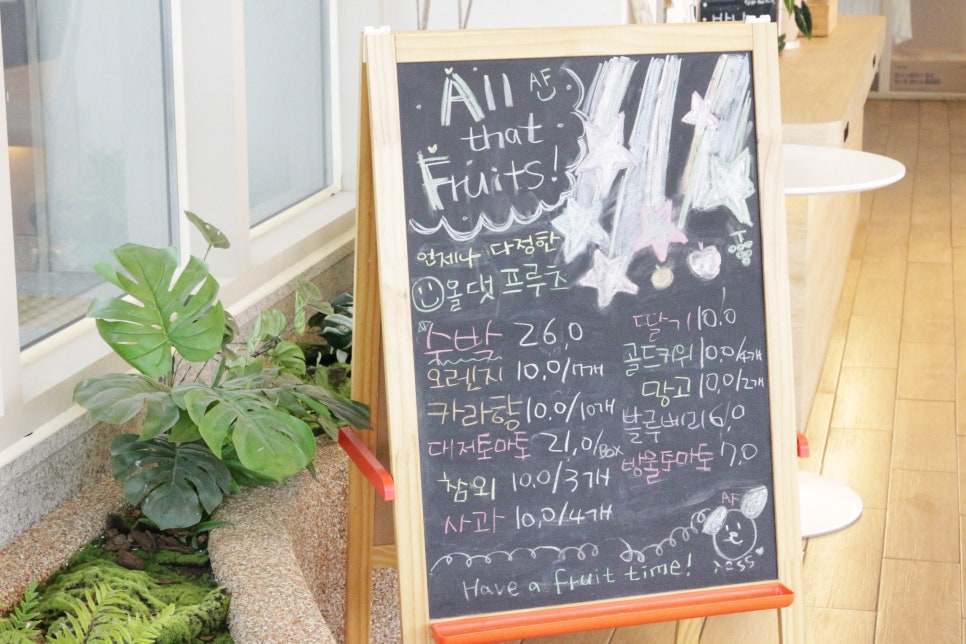 All AF
that
Fruits!
언제나 다정한
올댓 프루츠
수박 26,0
오렌지 10,0/7개
카라향 10,0/10개
대저토마토 21,0/BOX
참외 10,0/3개
사과 10,0/4개
딸기 10.0
골드키위 10,0/4개
망고 10,0/2개
블루베리 6,0
방울토마토 7,0
AF
Have a fruit time!